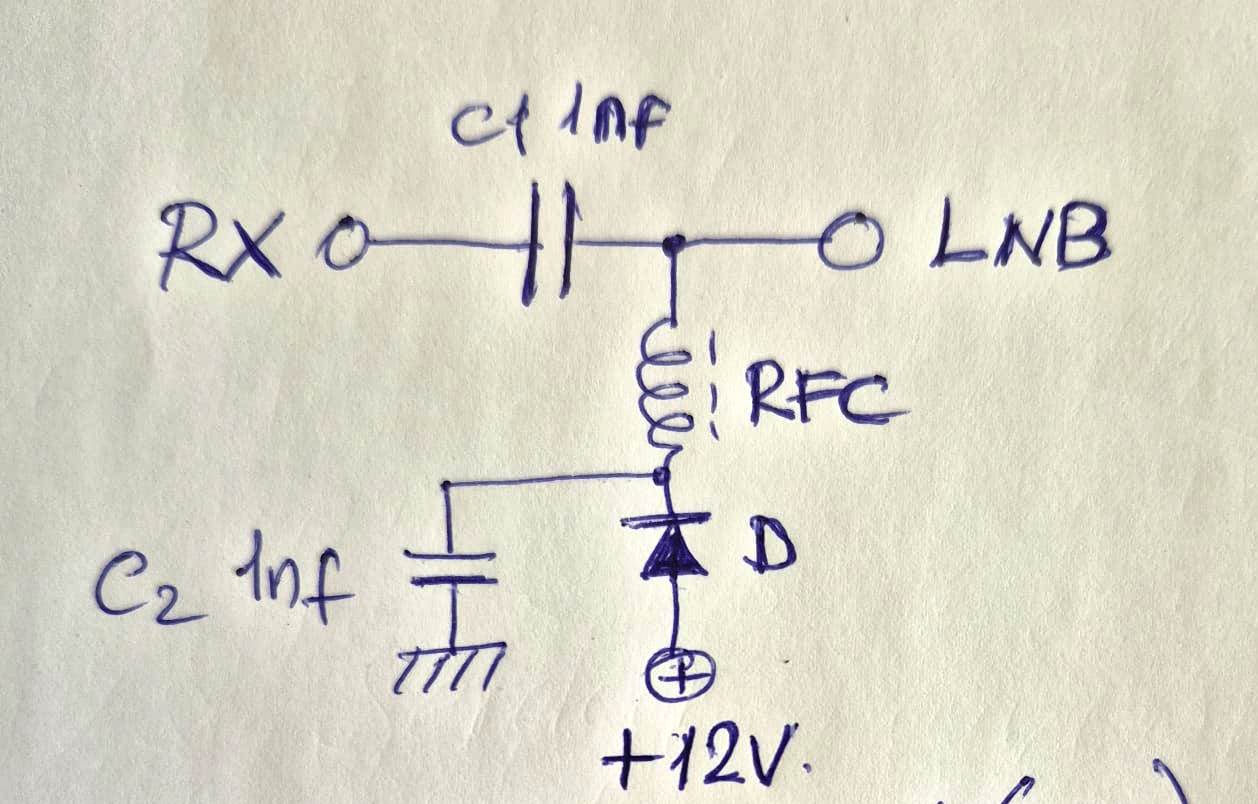 C1 1nF
RX
LNB
RFC
D
C2 1nf
+
+12V.